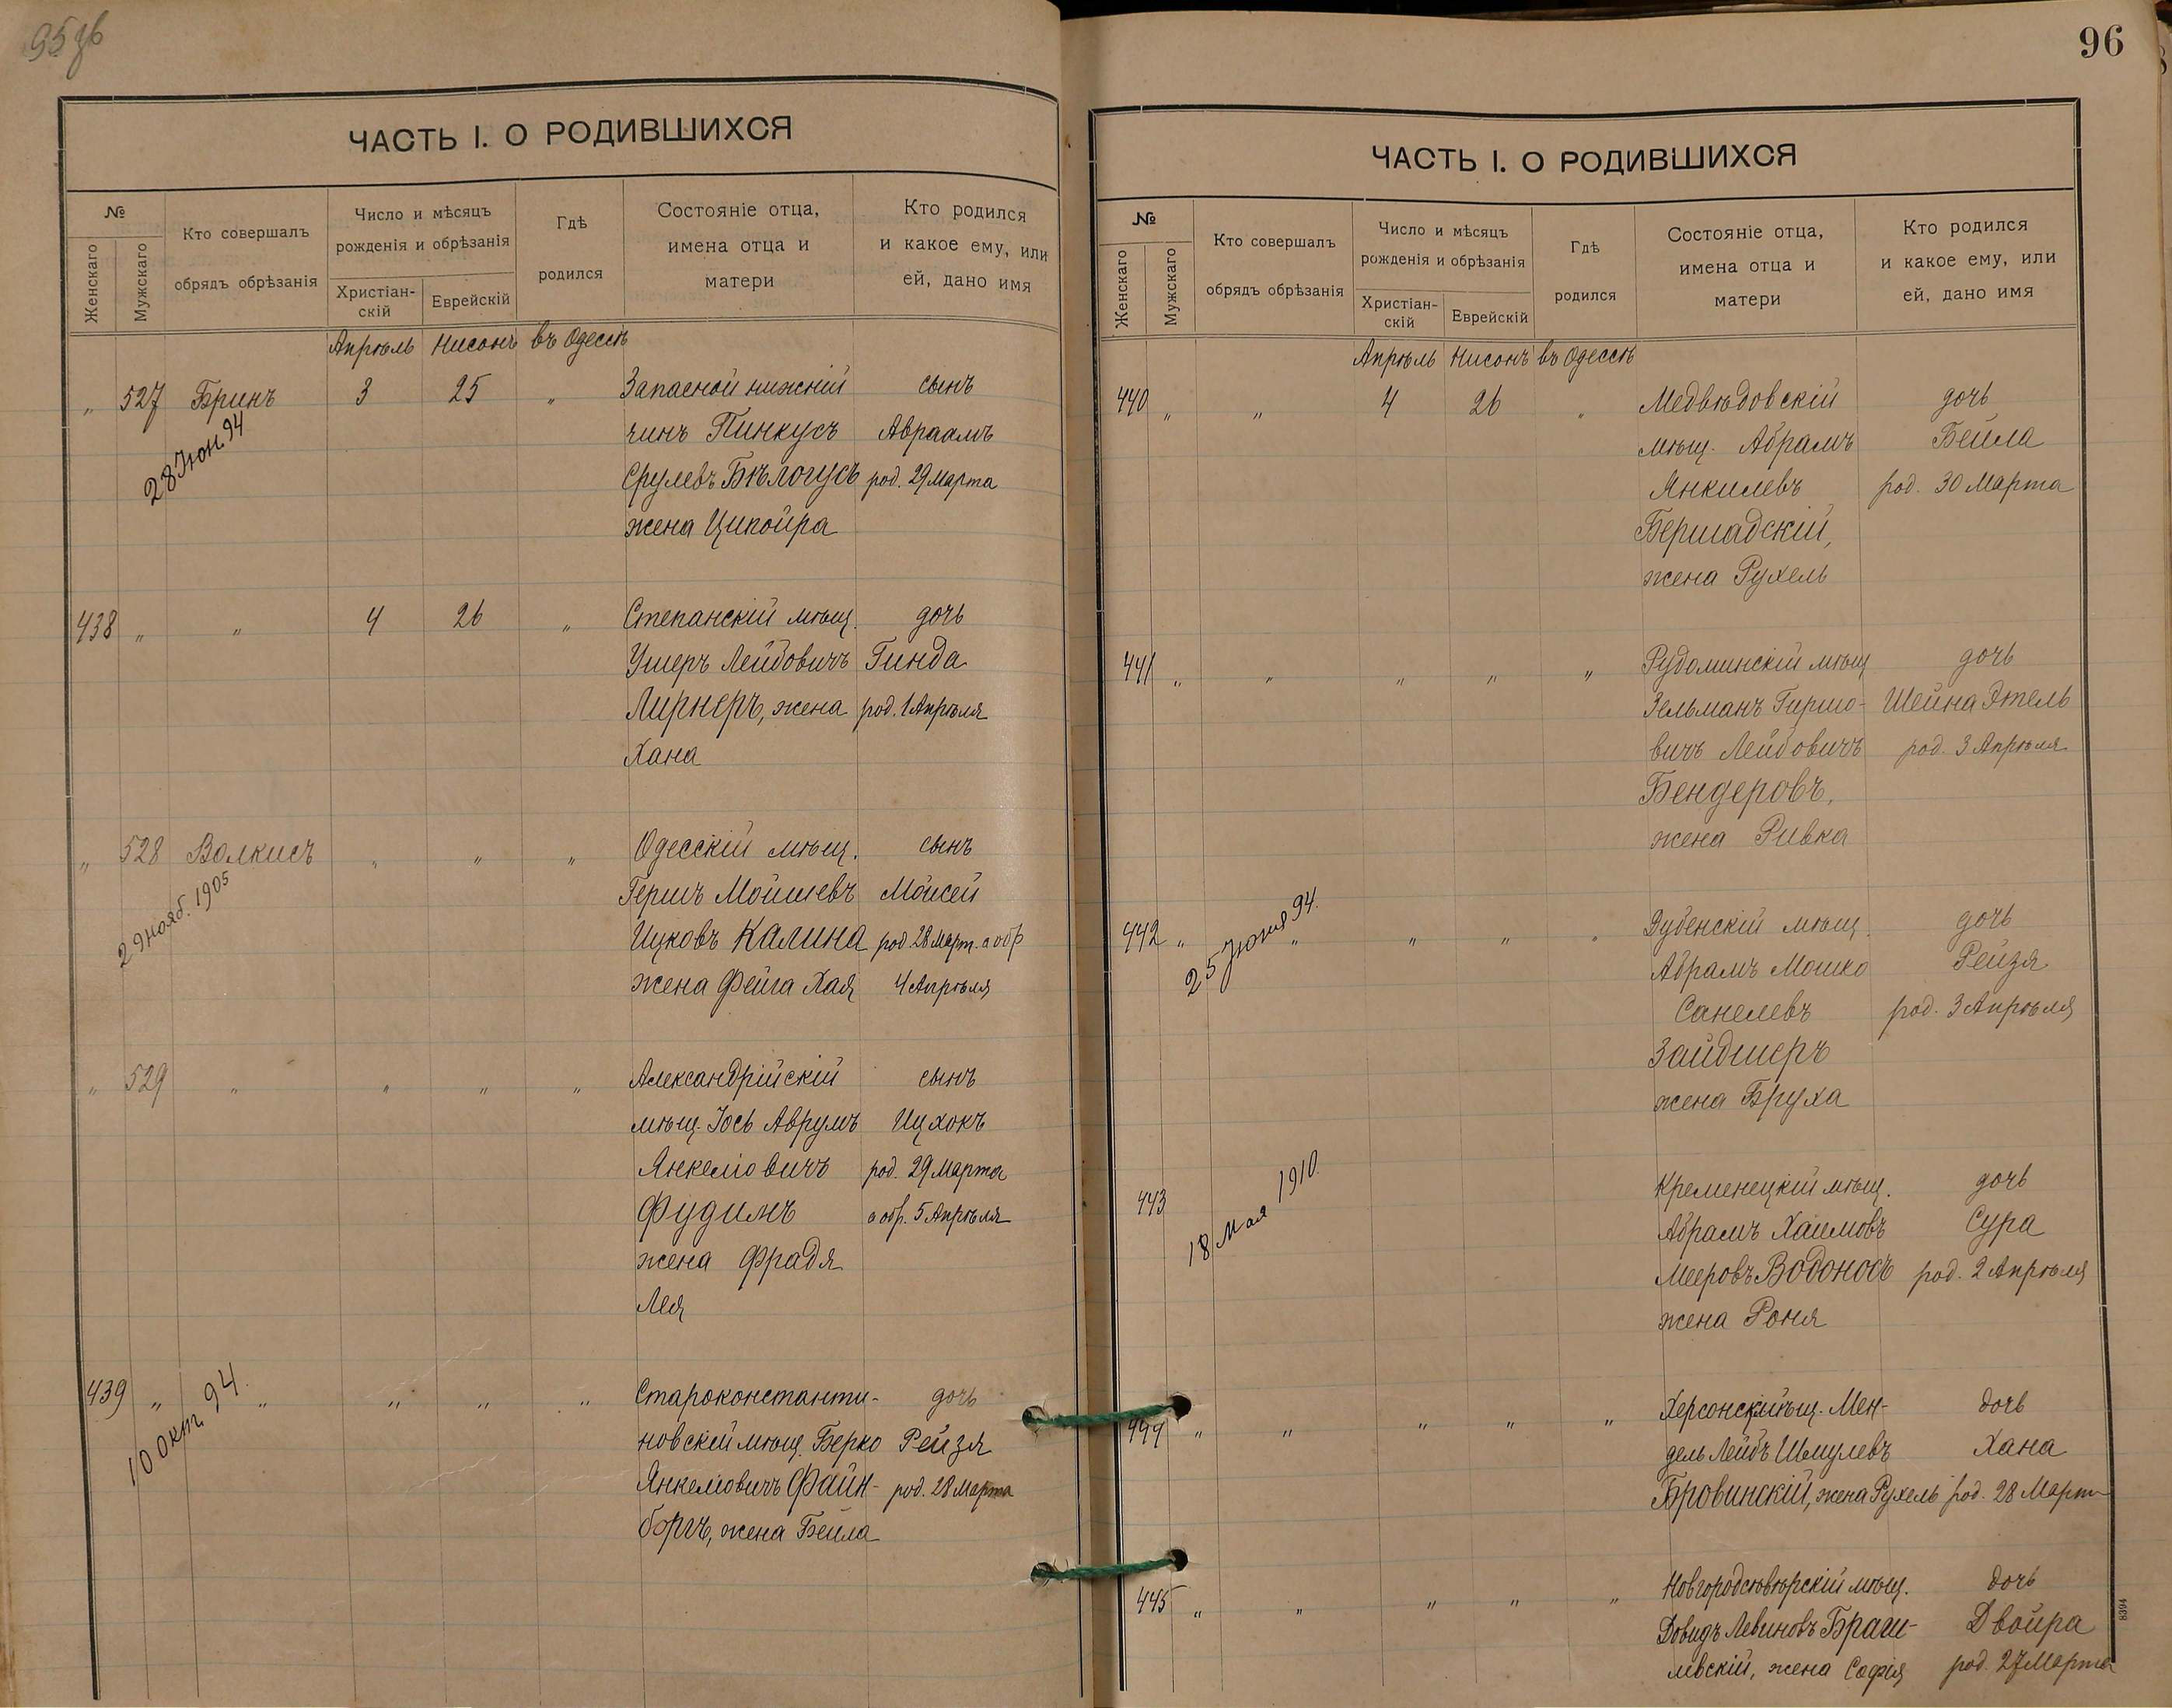 95 об
ЧАСТЬ I. О РОДИВШИХСЯ
№
Женскаго
Мужскаго
Кто совершалъ
обрядъ обрѣзанія
Число и мѣсяцъ
рожденія и обрѣзанія
Христіан-
скій
Еврейскій
Гдѣ
родился
Состояніе отца,
имена отца и
матери
Кто родился
и какое ему, или
ей, дано имя
Апрѣль Нисонъ въ Одессѣ
„ 527 Бринъ 3 25 „ Запасной нижній сынъ
28 Іюн. 94 чинъ Пинкусъ Авраамъ
Срулевъ Бѣлогусъ род. 29 Марта
жена Ципойра
438 „ „ 4 26 „ Степанскій мѣщ. дочь
Ушеръ Лейбовичъ Гинда
Лирнеръ, жена род. 1 Апрѣля
Хана
„ 528 Волкисъ „ „ „ Одесскій мѣщ. сынъ
29 нояб. 1905 Гершъ Мойшевъ Мойсей
Ицковъ Калина род. 28 Март. а обр
жена Фейга Хая 4 Апрѣля
„ 529 „ „ „ „ Александрійскій сынъ
мѣщ. Іось Аврумъ Ицхокъ
Янкеліовичъ род. 29 Марта
Фудимъ а обр. 5 Апрѣля
жена Фрадя
Лея
439 „ „ „ „ „ Староконстанти- дочь
10 Окт. 94. новскій мѣщ. Берко Рейзя
Янкеліовичъ Файн- род. 28 Марта
боргъ, жена Бейла
96
ЧАСТЬ I. О РОДИВШИХСЯ
№
Женскаго
Мужскаго
Кто совершалъ
обрядъ обрѣзанія
Число и мѣсяцъ
рожденія и обрѣзанія
Христіан-
скій
Еврейскій
Гдѣ
родился
Состояніе отца,
имена отца и
матери
Кто родился
и какое ему, или
ей, дано имя
Апрѣль Нисонъ въ Одессѣ
440 „ „ 4 26 „ Медвѣдовскій дочь
мѣщ. Абрамъ Бейла
Янкилевъ род. 30 Марта
Бершадскій,
жена Рухель
441 „ „ „ „ „ Рудоминскій мѣщ дочь
Зельманъ Гиршо- Шейна Этель
вичъ Лейбовичъ род. 3 Апрѣля
Бендеровъ,
жена Ривка
442 „ „ „ „ „ Дубенскій мѣщ. дочь
25 Іюня 94. Абрамъ Мошко Рейзя
Санелевъ род. 3 Апрѣля
Зайдшеръ
жена Бруха
443 Кременецкій мѣщ. дочь
18 Мая 1910. Абрамъ Хаимовъ Сура
Мееровъ Водоносъ род. 2 Апрѣля
жена Роня
444 „ „ „ „ „ Херсонскій мѣщ. Мен- дочь
дель Лейбъ Шмулевъ Хана
Бровинскій, жена Рухель род. 28 Март
445 „ „ „ „ „ Новгородсѣвѣрскій мѣщ. дочь
Довидъ Левиновъ Браги- Двойра
левскій, жена Софія род. 27 Марта
8394